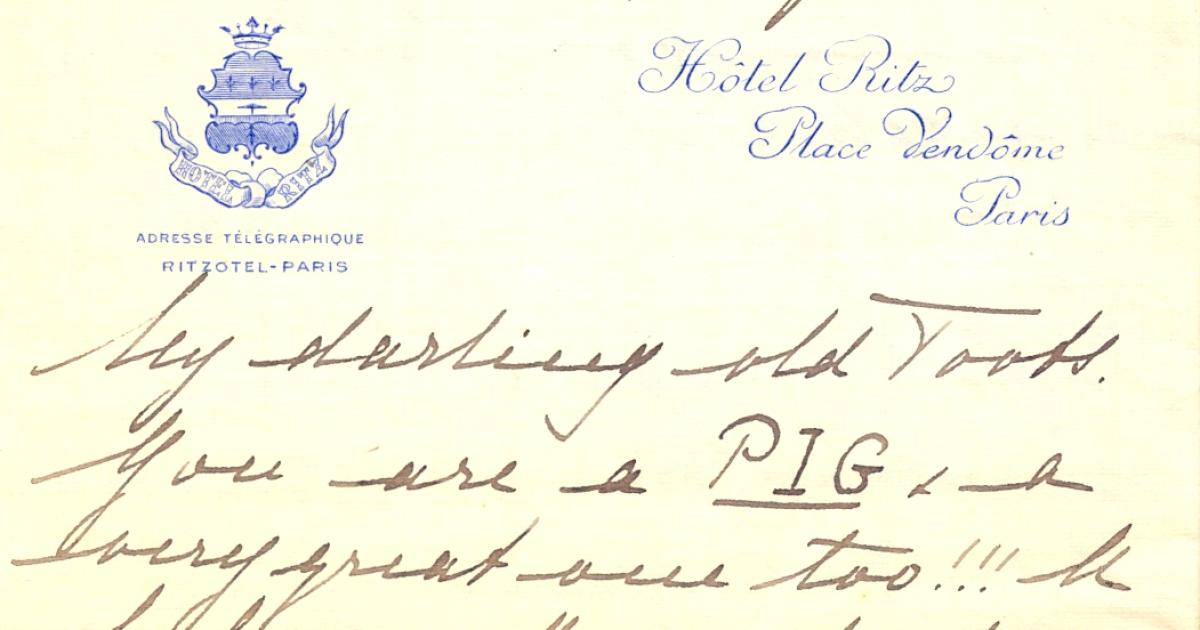 Hôtel Ritz
Place Vendôme
Paris
HOTEL RITZ
ADRESSE TÉLÉGRAPHIQUE
RITZOTEL-PARIS
My darling old Toots.
You are a PIG & a
very great one too!!!